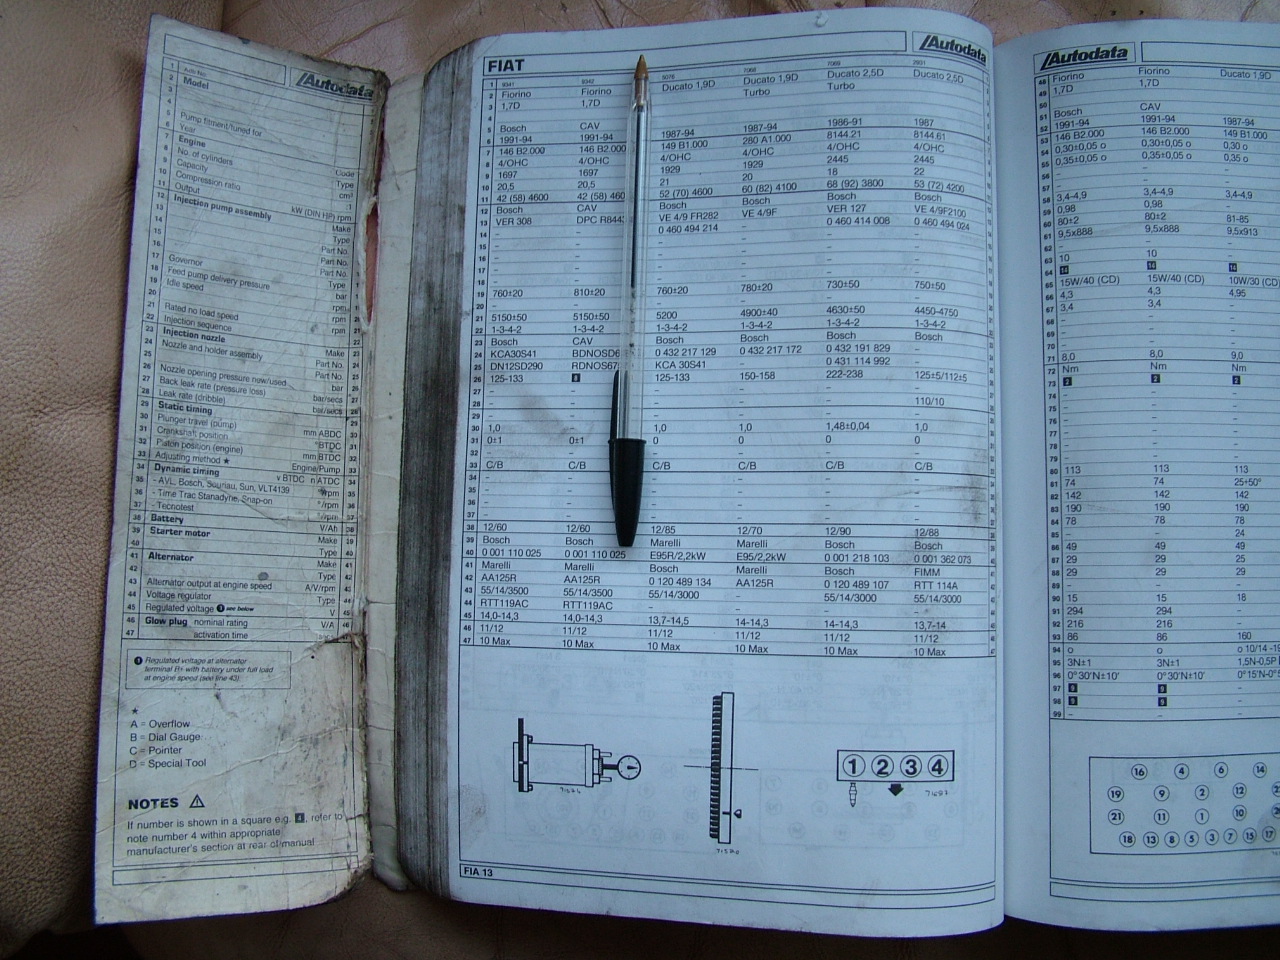 Autodata
1
2 Model
3
4
5 Pump fitment/tuned for
6 Year
7 Engine Code
8 No. of cylinders Type
9 Capacity cm³
10 Compression ratio
11 Output kW (DIN HP) rpm
12 Injection pump assembly Make
13 Type
14 Part No.
15 Part No.
16 Part No.
17 Governor Type
18 Feed pump delivery pressure bar
19 Idle speed rpm
20 rpm
21 Rated no load speed rpm
22 Injection sequence
23 Injection nozzle Make
24 Nozzle and holder assembly Part No.
25 Part No.
26 Nozzle opening pressure new/used bar
27 Back leak rate (pressure loss) bar/secs
28 Leak rate (dribble) bar/secs
29 Static timing
30 Plunger travel (pump) mm ABDC
31 Crankshaft position °BTDC
32 Piston position (engine) mm BTDC
33 Adjusting method ★ Engine/Pump
34 Dynamic timing v BTDC n ATDC
35 - AVL, Bosch, Souriau, Sun, VLT4139 °/rpm
36 - Time Trac Stanadyne, Snap-on °/rpm
37 - Tecnotest °/rpm
38 Battery V/Ah
39 Starter motor Make
40 Type
41 Alternator Make
42 Type
43 Alternator output at engine speed A/V/rpm
44 Voltage regulator Type
45 Regulated voltage 1 see below V
46 Glow plug nominal rating V/A
47 activation time
1 Regulated voltage at alternator
terminal B+ with battery under full load
at engine speed (see line 43).
★
A = Overflow
B = Dial Gauge
C = Pointer
D = Special Tool
NOTES
If number is shown in a square e.g. 4, refer to
note number 4 within appropriate
manufacturer's section at rear of manual
FIAT Autodata
1 9341 9342 5076 7068 7069 2931
2 Fiorino Fiorino Ducato 1,9D Ducato 1,9D Ducato 2,5D Ducato 2,5D
3 1,7D 1,7D Turbo Turbo
4
5 Bosch CAV
6 1991-94 1991-94 1987-94 1987-94 1986-91 1987
7 146 B2.000 146 B2.000 149 B1.000 280 A1.000 8144.21 8144.61
8 4/OHC 4/OHC 4/OHC 4/OHC 4/OHC 4/OHC
9 1697 1697 1929 1929 2445 2445
10 20,5 20,5 21 20 18 22
11 42 (58) 4600 42 (58) 460 52 (70) 4600 60 (82) 4100 68 (92) 3800 53 (72) 4200
12 Bosch CAV Bosch Bosch Bosch Bosch
13 VER 308 DPC R844 VE 4/9 FR282 VE 4/9F VER 127 VE 4/9F2100
14 - - 0 460 494 214 - 0 460 414 008 0 460 494 024
15 - - - - - -
16 - - - - - -
17 - - - - - -
18 - - - - - -
19 760±20 810±20 760±20 780±20 730±50 750±50
20 - - - - - -
21 5150±50 5150±50 5200 4900±40 4630±50 4450-4750
22 1-3-4-2 1-3-4-2 1-3-4-2 1-3-4-2 1-3-4-2 1-3-4-2
23 Bosch CAV Bosch Bosch Bosch Bosch
24 KCA30S41 BDNOSD6 0 432 217 129 0 432 217 172 0 432 191 829 -
25 DN12SD290 RDNOS67 KCA 30S41 - 0 431 114 992 -
26 125-133 8 125-133 150-158 222-238 125±5/112±5
27 - - - - - -
28 - - - - - 110/10
29
30 1,0 - 1,0 1,0 1,48±0,04 1,0
31 0±1 0±1 0 0 0 0
32 - - - - - -
33 C/B C/B C/B C/B C/B C/B
34
35 - - - - - -
36 - - - - - -
37 - - - - - -
38 12/60 12/60 12/85 12/70 12/90 12/88
39 Bosch Bosch Marelli Marelli Bosch Bosch
40 0 001 110 025 0 001 110 025 E95R/2,2kW E95/2,2kW 0 001 218 103 0 001 362 073
41 Marelli Marelli Bosch Marelli Bosch FIMM
42 AA125R AA125R 0 120 489 134 AA125R 0 120 489 107 RTT 114A
43 55/14/3500 55/14/3500 55/14/3000 - 55/14/3000 55/14/3000
44 RTT119AC RTT119AC - - - -
45 14,0-14,3 14,0-14,3 13,7-14,5 14-14,3 14-14,3 13,7-14
46 11/12 11/12 11/12 11/12 11/12 11/12
47 10 Max 10 Max 10 Max 10 Max 10 Max 10 Max
71574
71570
1 2 3 4
71697
FIA 13
Autodata
48 Fiorino Fiorino Ducato 1,9D
49 1,7D 1,7D
50
51 Bosch CAV
52 1991-94 1991-94 1987-94
53 146 B2.000 146 B2.000 149 B1.000
54 0,30±0,05 o 0,30±0,05 o 0,30 o
55 0,35±0,05 o 0,35±0,05 o 0,35 o
56
57
58 3,4-4,9 3,4-4,9 3,4-4,9
59 0,98 0,98 -
60 80±2 80±2 81-85
61 9,5x888 9,5x888 9,5x913
62
63 10 10
64 14 14 14
65 15W/40 (CD) 15W/40 (CD) 10W/30 (CD)
66 4,3 4,3 4,95
67 3,4 3,4
68 - - -
69 - - -
70 - - -
71 8,0 8,0 9,0
72 Nm Nm Nm
73 2 2 2
74 - - -
75 - - -
76 - - -
77 - - -
78 - - -
79 - - -
80 113 113 113
81 74 74 25+50°
82 142 142 142
83 190 190 190
84 78 78 78
85 - - 24
86 49 49 49
87 29 29 25
88 29 29 29
89
90 15 15 18
91 294 294 -
92 216 216 -
93 86 86 160
94 o o o 10/14
95 3N±1 3N±1 1,5N-0,5P
96 0°30'N±10' 0°30'N±10' 0°15'N
97 9 9 -
98 9 9 -
99 - - -
16 4 6 14
19 9 2 12
21 11 1 10
18 13 8 5 3 7 15 17